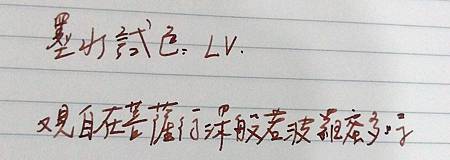 墨水試色: LV.
观自在菩薩行深般若波羅蜜多